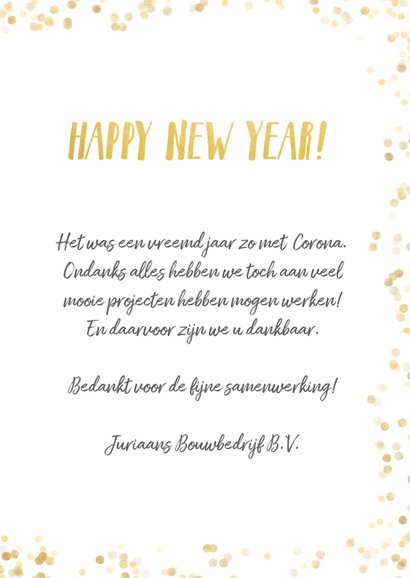 HAPPY NEW YEAR!
Het was een vreemd jaar zo met Corona.
Ondanks alles hebben we toch aan veel
mooie projecten hebben mogen werken!
En daarvoor zijn we u dankbaar.
Bedankt voor de fijne samenwerking!
Juriaans Bouwbedrijf B.V.